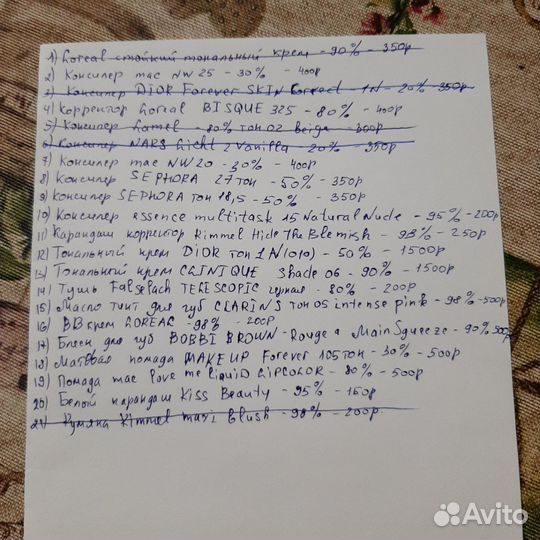 1) Loreal стойкий тональный крем - 90% - 350р
2) Консилер mac NW 25 - 30% - 400р
3) Консилер DIOR Forever SKIN Correct - 1N - 20% - 350р
4) Корректор Loreal BISQUE 325 - 80% - 400р
5) Консилер Lamel - 80% тон 02 beige - 300р
6) Консилер NARS Light 2 Vanilla - 20% - 350р
7) Консилер mac NW 20 - 30% - 400р
8) Консилер SEPHORA 27 тон - 50% - 350р
9) Консилер SEPHORA тон 18,5 - 50% - 350р
10) Консилер essence multitask 15 Natural Nude - 95% - 200р
11) Карандаш корректор Rimmel Hide The Blemish - 98% - 250р
12) Тональный крем DIOR тон 1N (010) - 50% - 1500р
13) Тональный крем CLINIQUE Shade 06 - 90% - 1500р
14) Тушь Falselash TELESCOPIC черная - 80% - 200р
15) Масло тинт для губ CLARINS тон 05 intense pink - 98% - 500р
16) BB крем LOREAL - 98% - 200р
17) Блеск для губ BOBBI BROWN - Rouge a Main Squeeze - 90% 500р
18) Матовая помада MAKE UP Forever 105 тон - 30% - 500р
19) Помада mac love me LIQUID LIPCOLOR - 80% - 500р
20) Белый карандаш Kiss Beauty - 95% - 150р
21) Румяна Rimmel maxi blush - 98% - 200р.
Avito